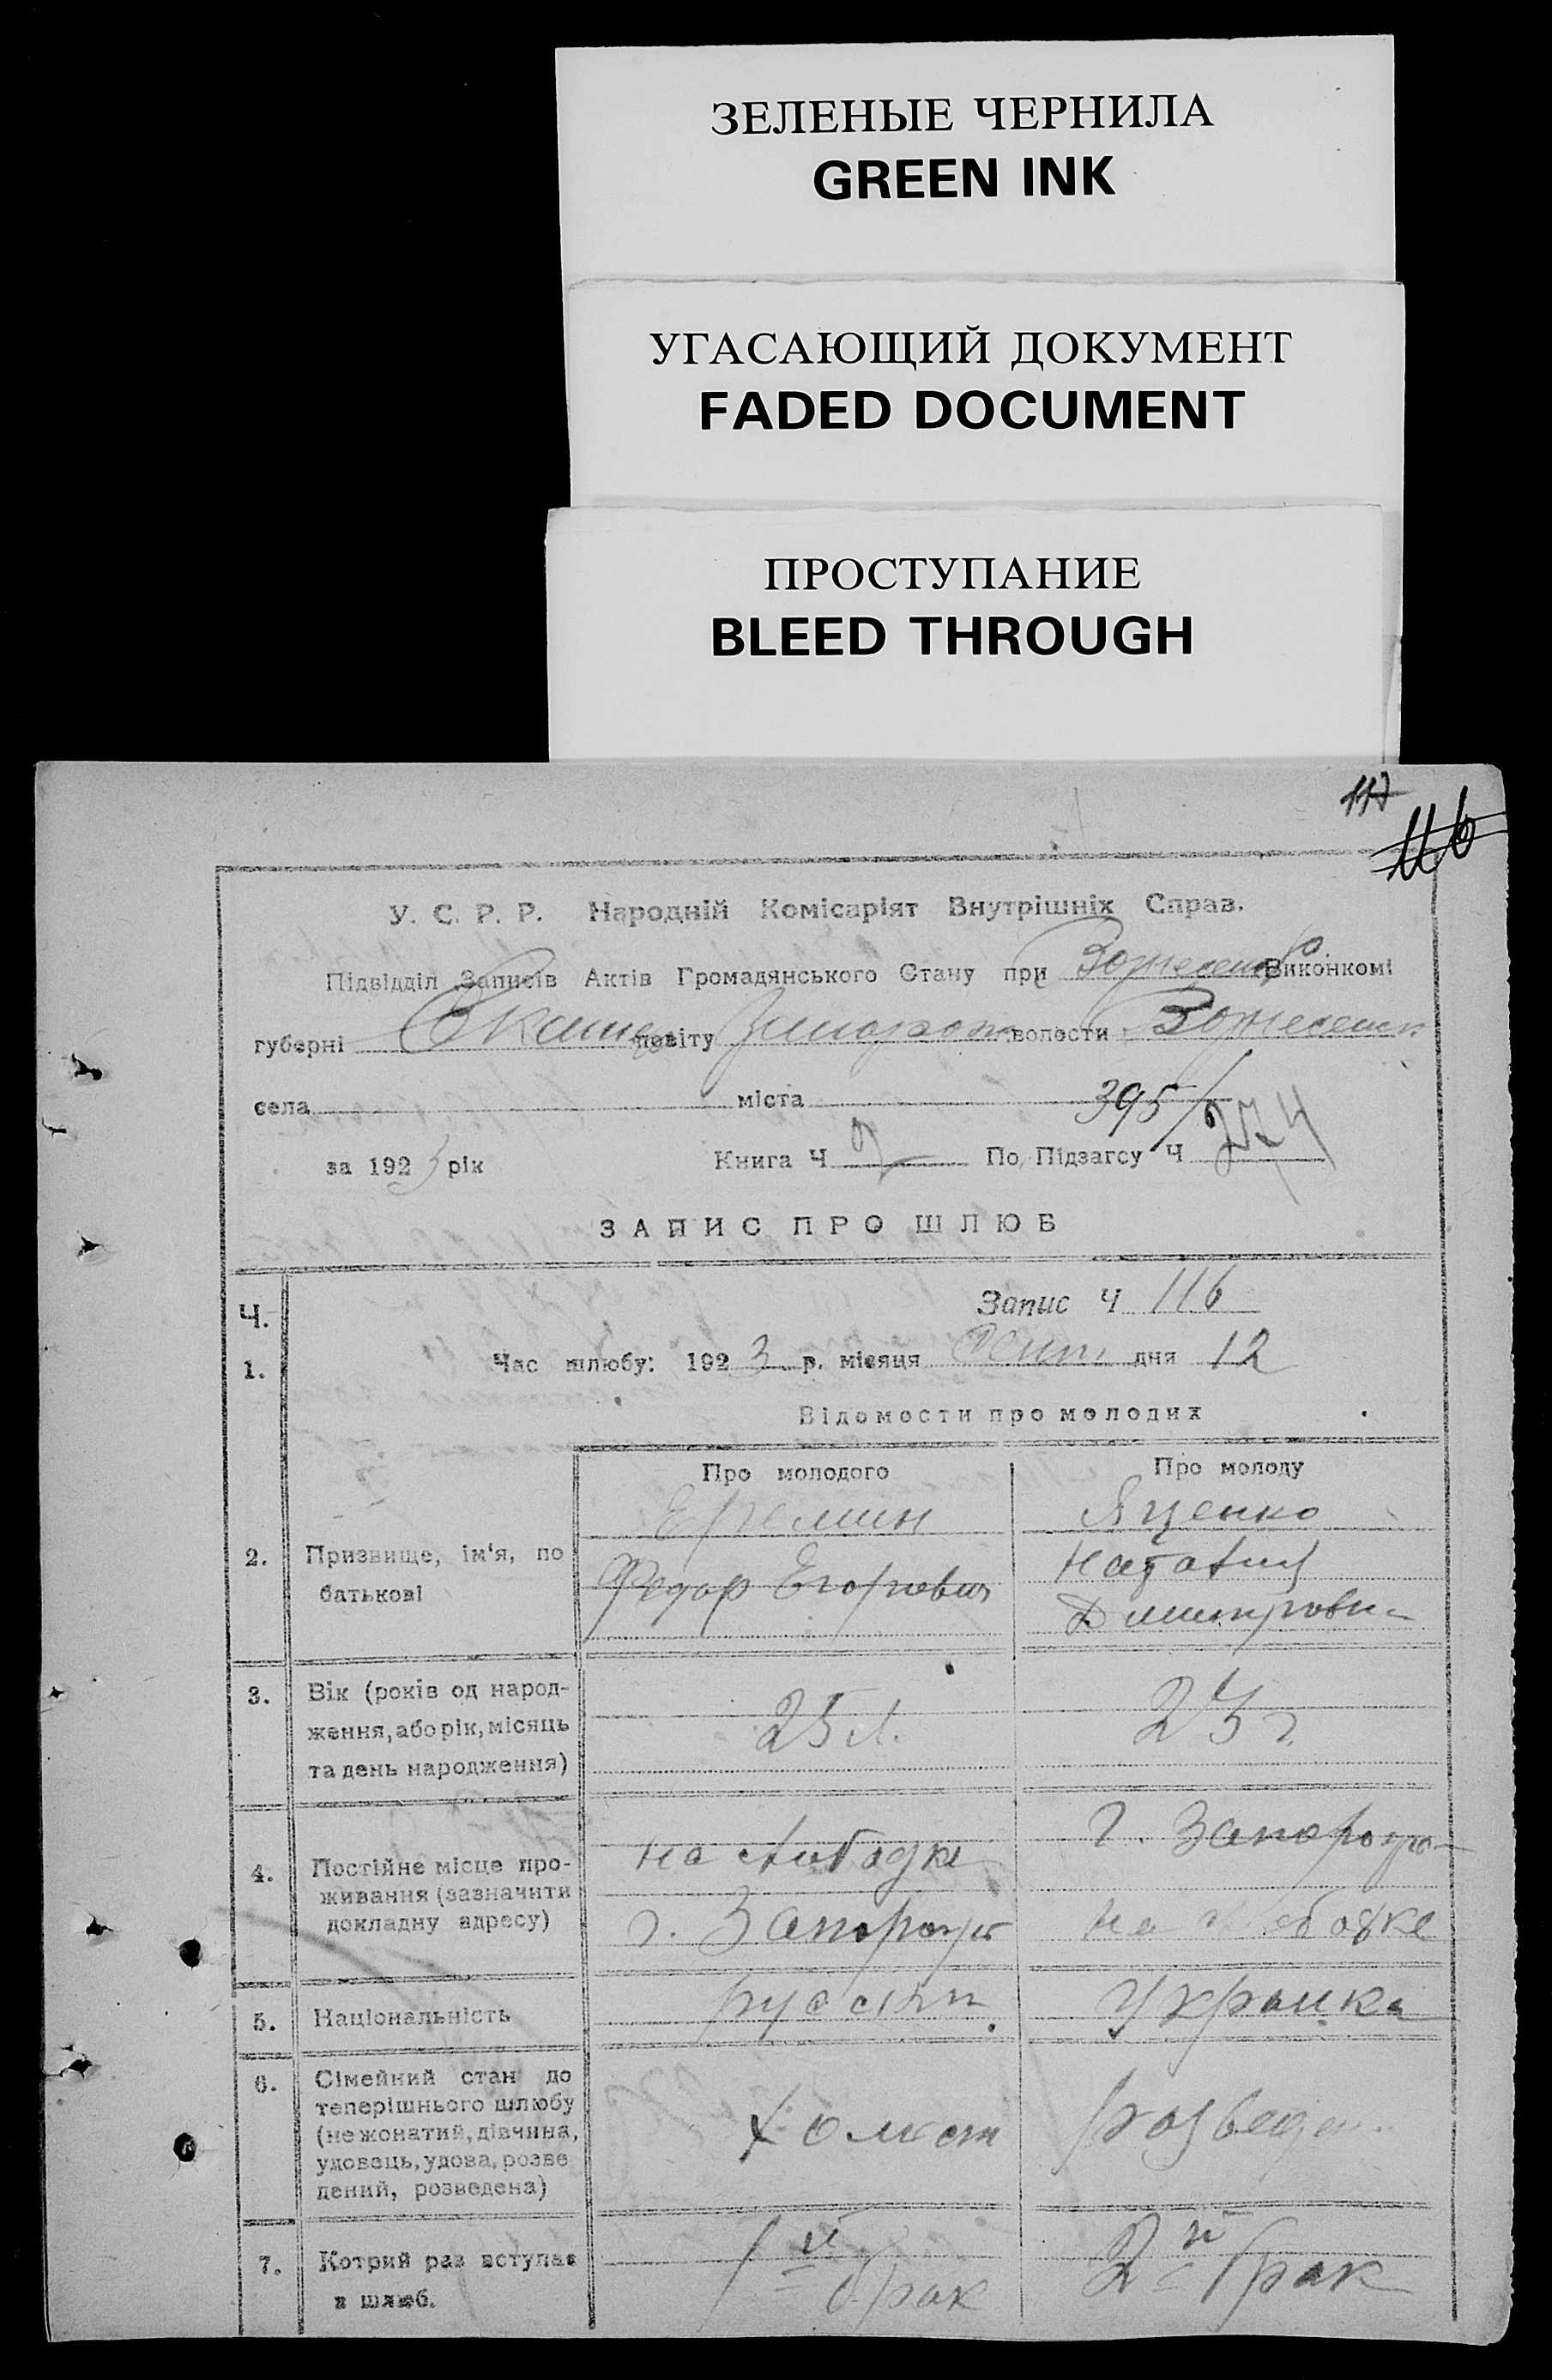 ЗЕЛЕНЫЕ ЧЕРНИЛА
GREEN INK
УГАСАЮЩИЙ ДОКУМЕНТ
FADED DOCUMENT
ПРОСТУПАНИЕ
BLEED THROUGH
117
116
У. С. Р. Р. Народній Комісаріят Внутрішніх Справ.
Підвідділ Записів Актів Громадянського Стану при Виконкомі
губерні повіту Запорож волости
села міста 395/
за 1923 рік Книга Ч По Підзагсу Ч 274
ЗАПИС ПРО ШЛЮБ
Ч. Запис Ч 116
1. Час шлюбу: 1923 р. місяця дня 12
Відомости про молодих
Про молодого Про молоду
Еремин Яценко
2. Призвище, ім'я, по батькові
Федор Егоревич Наталия
Дмитрови-
3. Вік (років од народ-
ження, або рік, місяць
та день народження)
25 л. 23 г.
4. Постійне місце про-
живання (зазначити
докладну адресу)
на г. Запорожье
г. Запорожье на
5. Національність русский Украинка
6. Сімейний стан до
теперішнього шлюбу
(не жонатий, дівчина,
удовець, удова, розве
дений, розведена)
холост разведен
7. Котрий раз вступає
в шлюб.
1й брак 2й брак